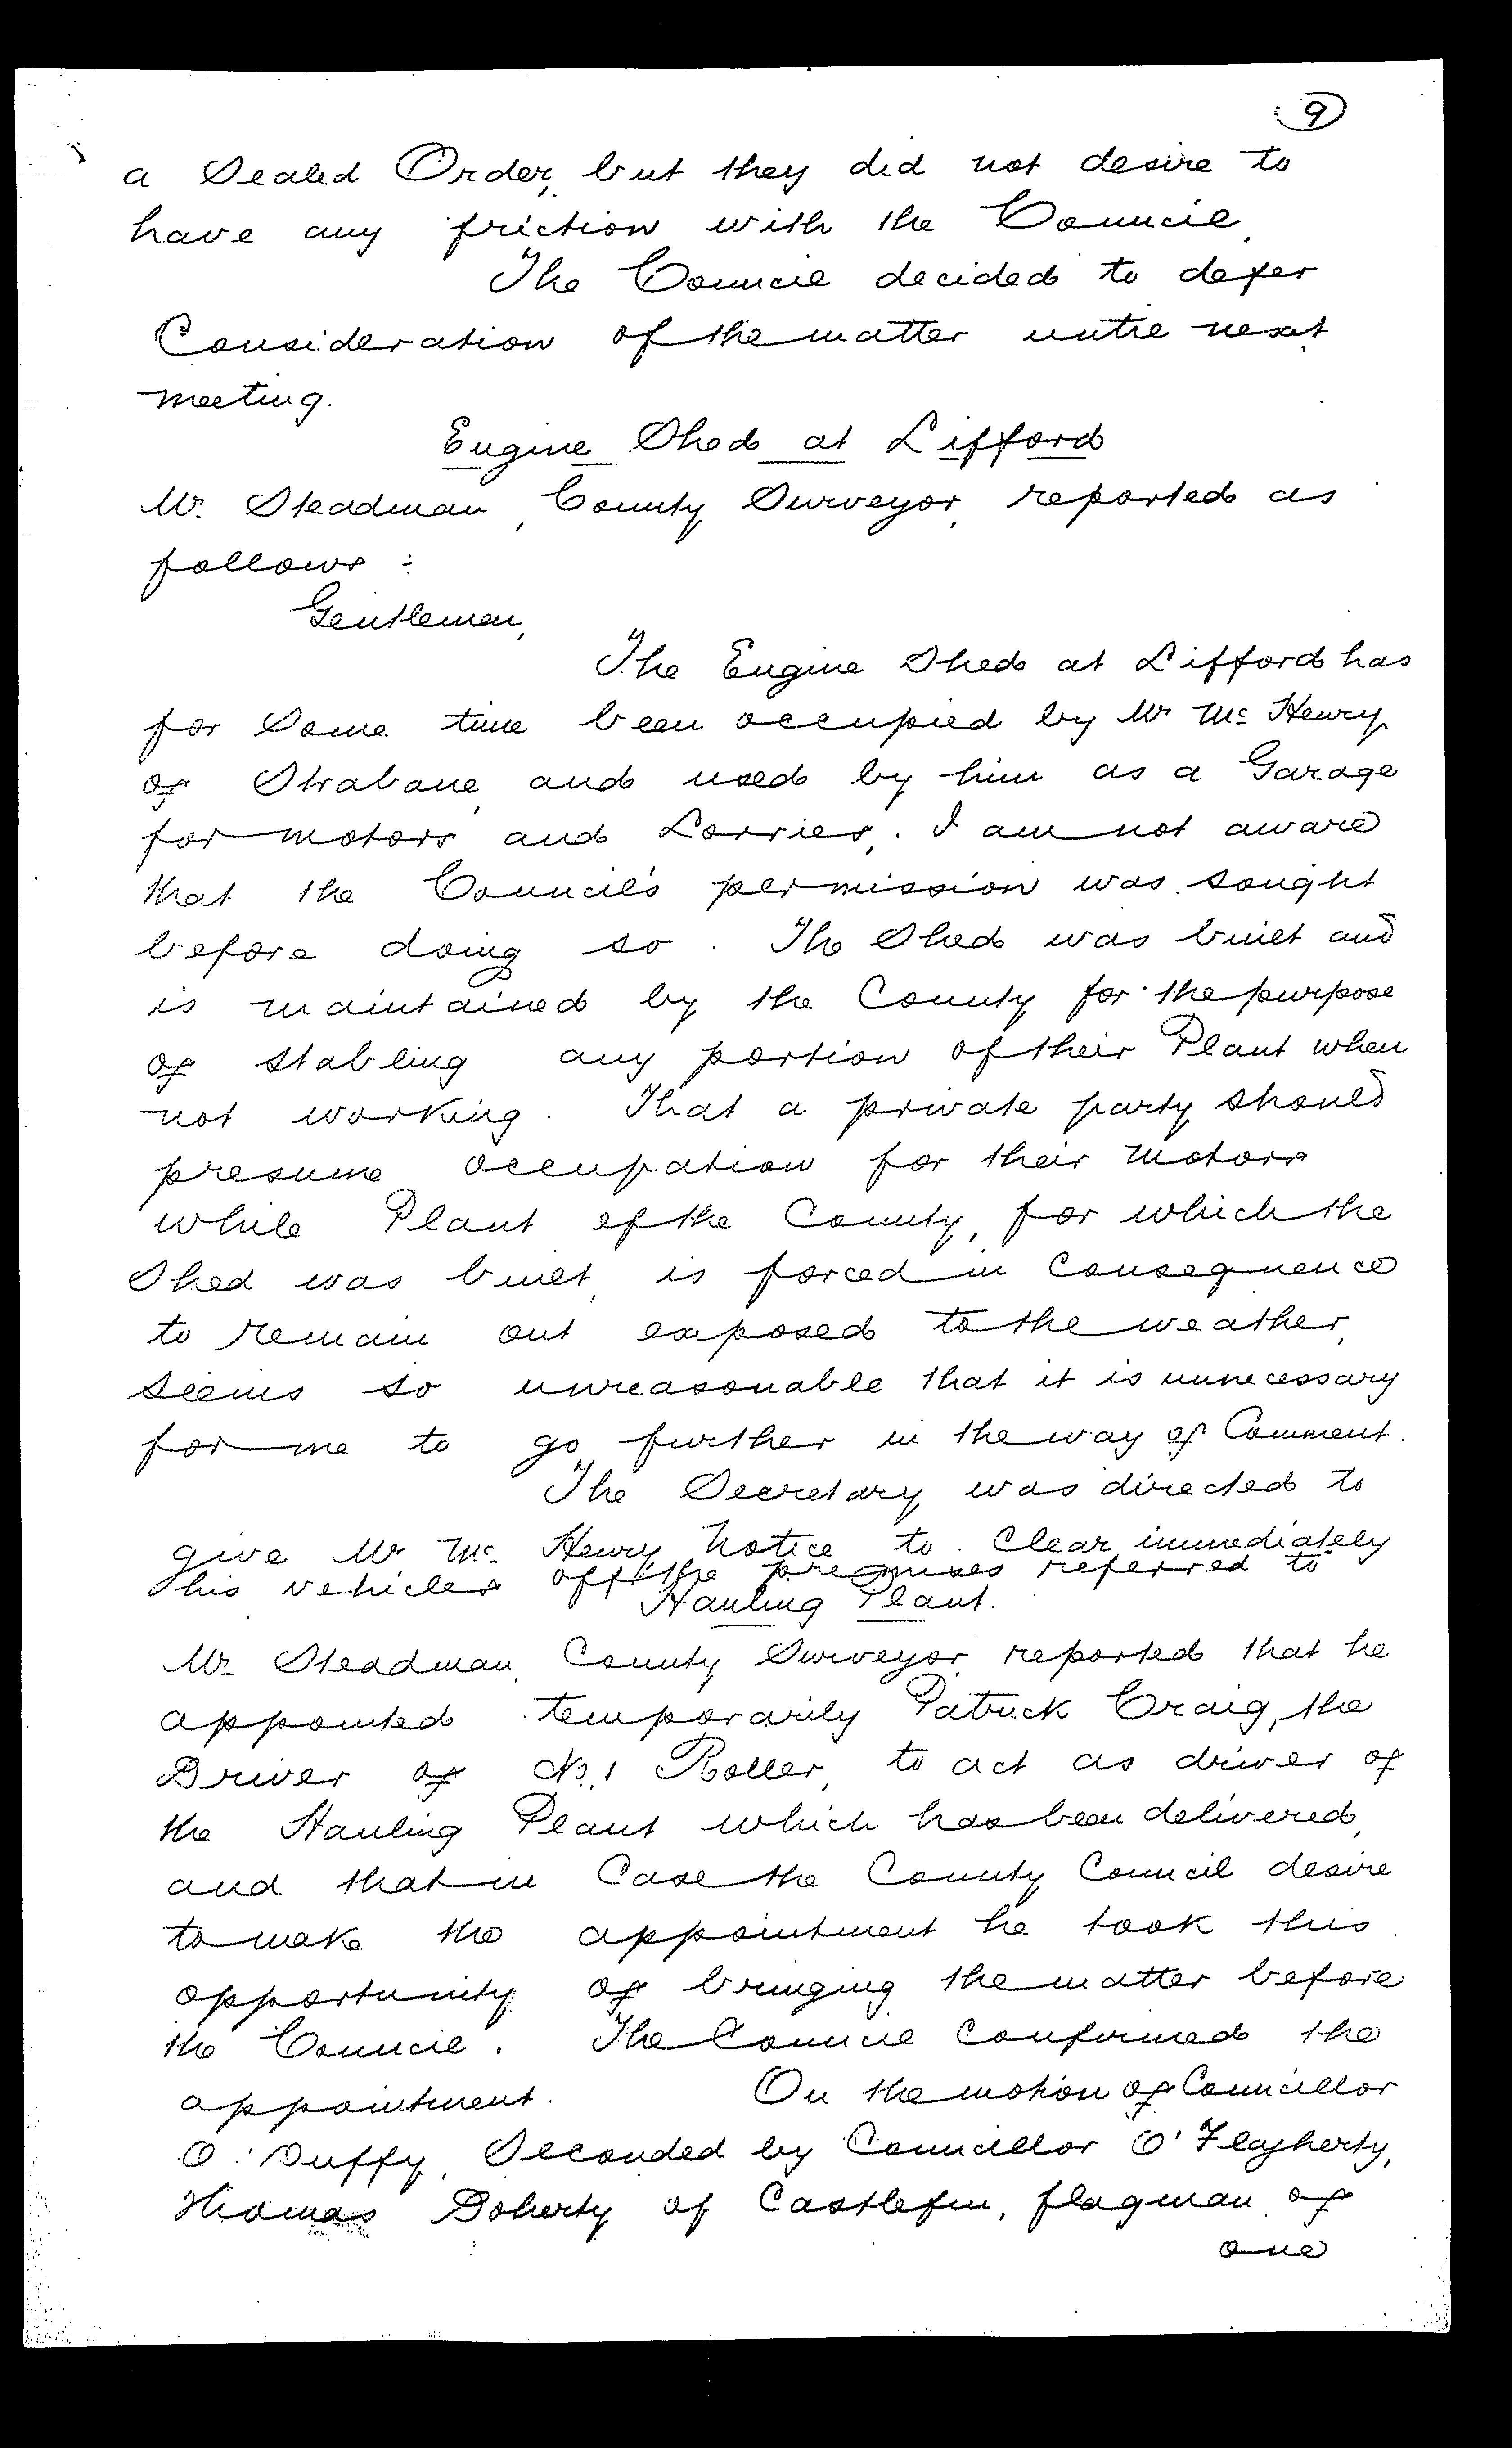 9
a Sealed Order, but they did not desire to
have any friction with the Council.
The Council decided to defer
Consideration of the matter until next
meeting.
Engine Shed at Lifford
Mr. Steadman, County Surveyor, reported as
follows :
Gentlemen,
The Engine Shed at Lifford has
for Some time been occupied by Mr McHenry
of Strabane, and used by him as a Garage
for motors and Lorries. I am not aware
that the Council's permission was sought
before doing so. The Shed was built and
is maintained by the County for the purpose
of stabling any portion of their Plant when
not working. That a private party should
presume occupation for their motors
while Plant of the County, for which the
Shed was built, is forced in Consequence
to remain out exposed to the weather,
seems so unreasonable that it is unnecessary
for me to go further in the way of Comment.
The Secretary was directed to
give Mr McHenry notice to Clear immediately
his vehicles off the premises referred to
Hauling Plant.
Mr Steadman, County Surveyor, reported that he
appointed temporarily Patrick Craig, the
Driver of No. 1 Roller, to act as driver of
the Hauling Plant which has been delivered,
and that in Case the County Council desire
to make the appointment he took this
opportunity of bringing the matter before
the Council. The Council Confirmed the
appointment. On the motion of Councillor
O'Duffy, Seconded by Councillor O'Flagherty,
Thomas Doherty of Castlefin, flagman of
one